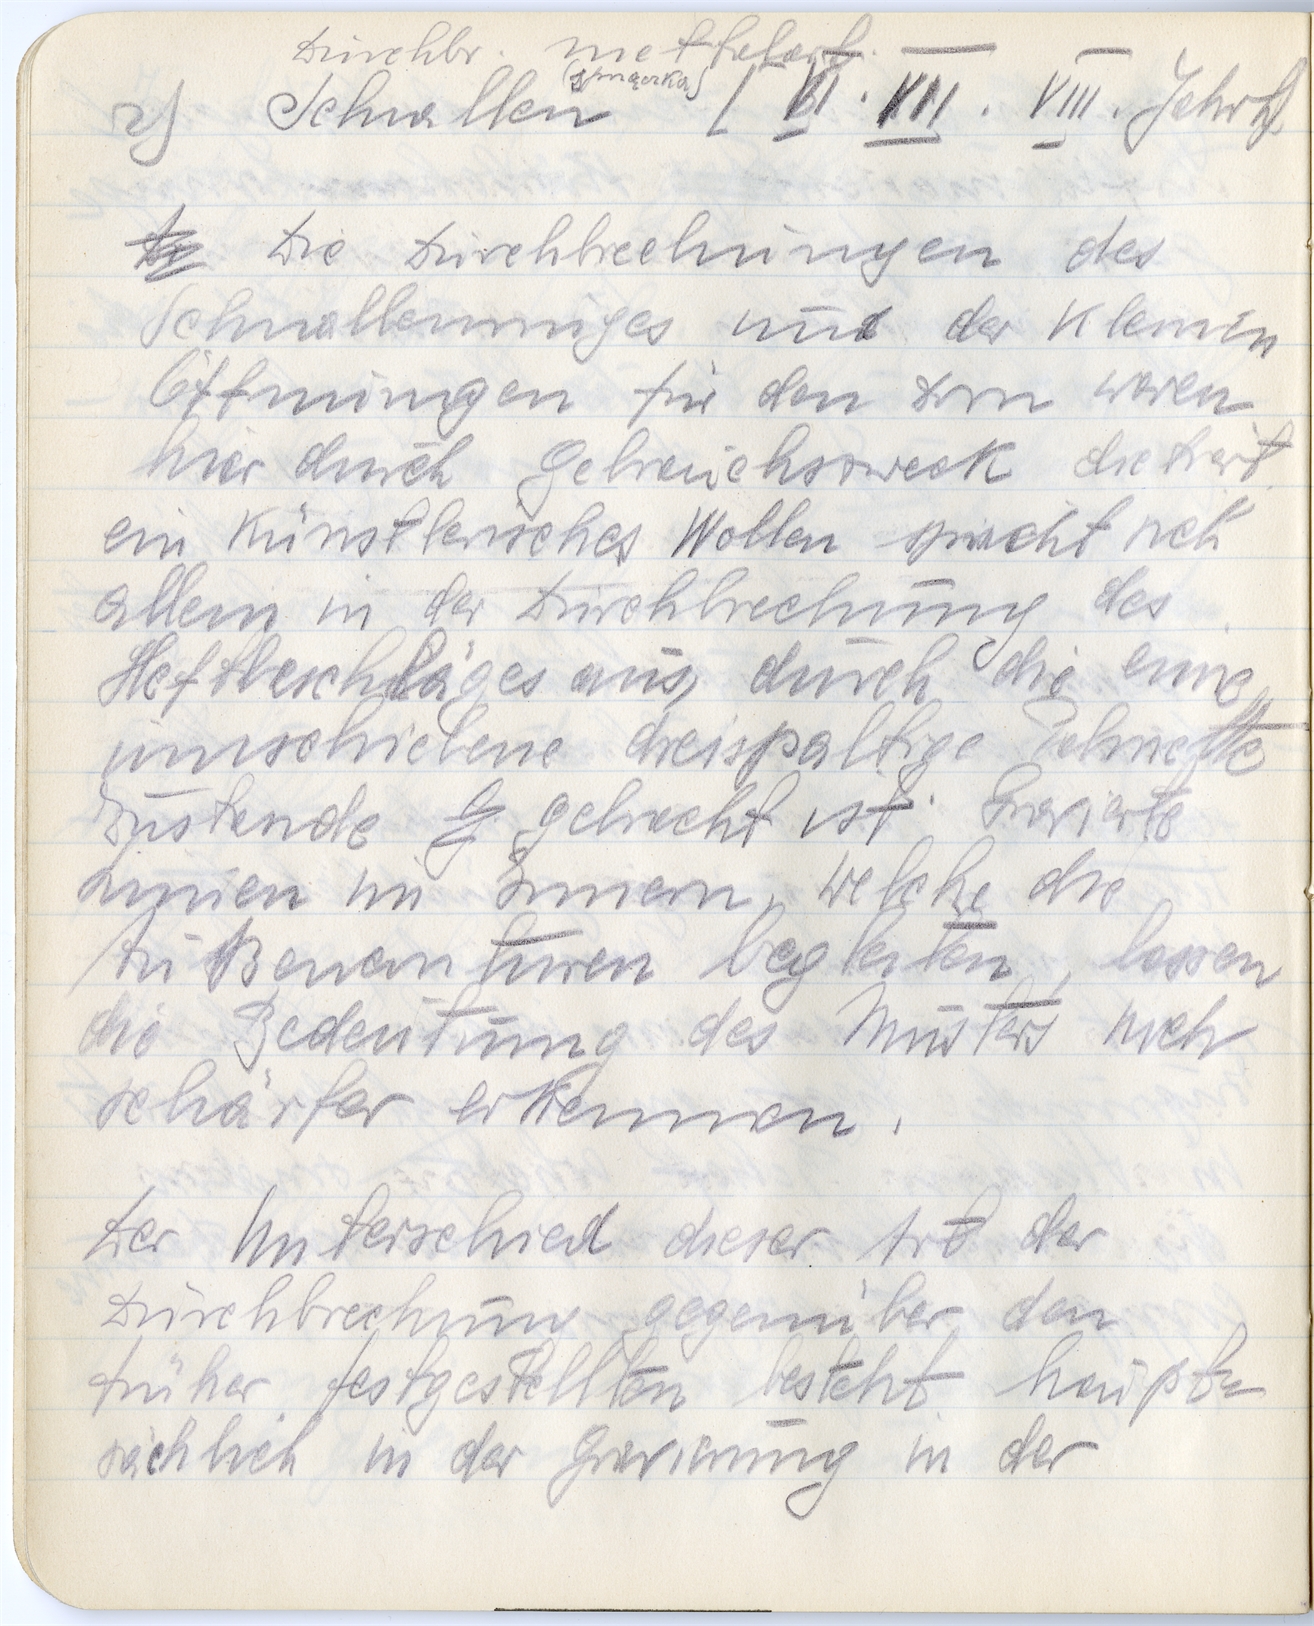 Durchbr. mettelart.
(Spnączka)
2) Schnallen [ VI. VII. VIII. Jahrh
Die Durchbrechungen des
Schnallenringes und der kleinen
Öffnungen für den Dorn waren
hier durch Gebrauchszweck diktiert
ein künstlerisches Wollen spricht sich
allein in der Durchbrechung des
Heftbeschläges aus, durch die eine
umschriebene dreispaltige Palmette
Zustande gebracht ist. Gravierte
Linien im Innern, welche die
Außenconturen begleiten, lassen
die Bedeutung des Musters noch
schärfer erkennen.
Der Unterschied dieser Art der
Durchbrechung gegenüber den
früher festgestellten besteht haupt=
sächlich in der Gravierung in der